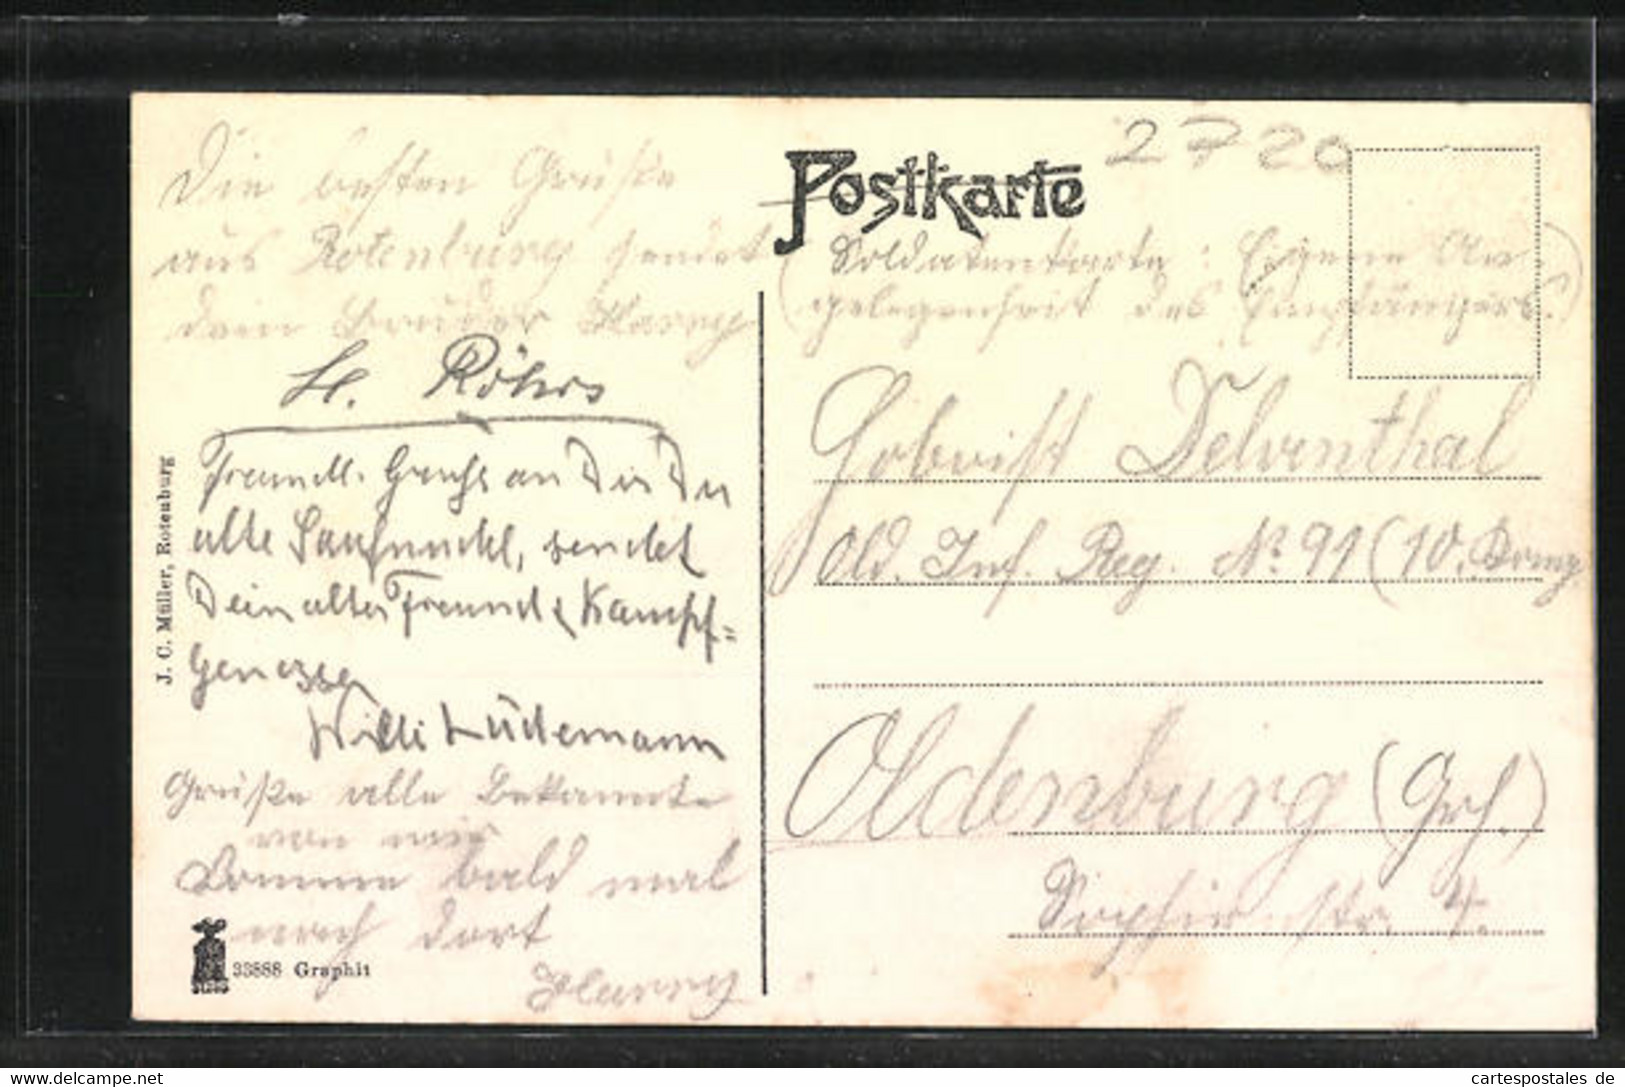 Die besten Grüße
aus Rotenburg sendet
dein Bruder Harry
H. Röhrs
Freundl. Gruss an Dir Du
alte Saufnudel, sendet
Dein alter Freund & Kampf=
Genosse
Willi Lüdemann
Grüße alle Bekannte
von mir
Komme bald mal
nach dort
Harry
J. C. Müller, Rotenburg
33888 Graphit
2720
Postkarte
(Soldatenkarte: Eigene An-
gelegenheit des Empfängers.)
Delventhal
Old. Inf. Reg. No. 91 (10.
Oldenburg (Grh.)
Str. 4.
cartespostales de